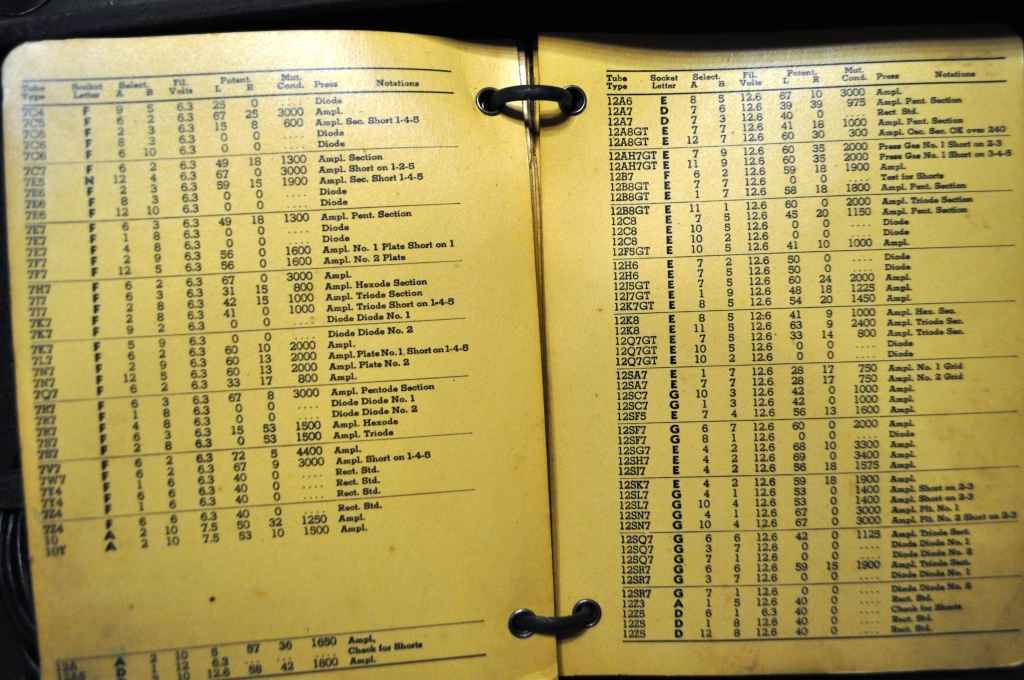 Tube Type Socket Letter Select. A B Fil. Volts Potent. L R Mut. Cond. Press Notations
7C4 F 9 5 6.3 25 0 .... Diode
7C5 F 6 2 6.3 67 25 3000 Ampl.
7C6 F 2 3 6.3 15 8 600 Ampl. Sec. Short 1-4-5
7C6 F 8 3 6.3 0 0 .... Diode
7C6 F 6 10 6.3 0 0 .... Diode
7C7 F 6 2 6.3 49 18 1300 Ampl. Section
7E5 N 12 4 6.3 67 0 3000 Ampl. Short on 1-2-5
7E6 F 2 3 6.3 59 15 1900 Ampl. Sec. Short 1-4-5
7E6 F 8 3 6.3 0 0 .... Diode
7E6 F 12 10 6.3 0 0 .... Diode
7E7 F 6 3 6.3 49 18 1300 Ampl. Pent. Section
7E7 F 1 8 6.3 0 0 .... Diode
7E7 F 4 8 6.3 0 0 .... Diode
7F7 F 2 9 6.3 56 0 1600 Ampl. No. 1 Plate Short on 1
7F7 F 12 5 6.3 56 0 1600 Ampl. No. 2 Plate
7H7 F 6 2 6.3 67 0 3000 Ampl.
7J7 F 6 3 6.3 31 15 800 Ampl. Hexode Section
7J7 F 2 8 6.3 42 15 1000 Ampl. Triode Section
7K7 F 6 2 6.3 41 0 1000 Ampl. Triode Short on 1-4-5
7K7 F 9 2 6.3 0 0 .... Diode Diode No. 1
7K7 F 5 9 6.3 0 0 .... Diode Diode No. 2
7L7 F 6 2 6.3 60 10 2000 Ampl.
7N7 F 2 9 6.3 60 13 2000 Ampl. Plate No. 1, Short on 1-4-5
7N7 F 12 5 6.3 60 13 2000 Ampl. Plate No. 2
7Q7 F 6 2 6.3 33 17 800 Ampl.
7R7 F 6 3 6.3 67 8 3000 Ampl. Pentode Section
7R7 F 1 8 6.3 0 0 .... Diode Diode No. 1
7R7 F 4 8 6.3 0 0 .... Diode Diode No. 2
7S7 F 6 3 6.3 15 53 1500 Ampl. Hexode
7S7 F 2 8 6.3 0 53 1500 Ampl. Triode
7V7 F 6 2 6.3 72 5 4400 Ampl.
7W7 F 6 2 6.3 67 9 3000 Ampl. Short on 1-4-5
7Y4 F 1 6 6.3 40 0 .... Rect. Std.
7Y4 F 6 6 6.3 40 0 .... Rect. Std.
7Z4 F 1 6 6.3 40 0 .... Rect. Std.
7Z4 F 6 6 6.3 40 0 .... Rect. Std.
10 A 2 10 7.5 50 32 1250 Ampl.
10Y A 2 10 7.5 53 10 1500 Ampl.
12A A 2 10 5 57 36 1650 Ampl.
D 1 12 6.3 .... Check for Shorts
D 1 10 12.6 68 42 1800 Ampl.
Tube Type Socket Letter Select. A B Fil. Volts Potent. L R Mut. Cond. Press Notations
12A6 E 8 5 12.6 67 10 3000 Ampl.
12A7 D 7 6 12.6 39 39 975 Ampl. Pent. Section
12A7 D 7 3 12.6 40 0 .... Rect. Std.
12A8GT E 7 7 12.6 41 18 1000 Ampl. Pent. Section
12A8GT E 12 7 12.6 60 30 300 Ampl. Osc. Sec. OK over 240
12AH7GT E 7 9 12.6 60 35 2000 Press Gas No. 1 Short on 2-3
12AH7GT E 11 9 12.6 60 35 2000 Press Gas No. 1 Short on 3-4-5
12B7 F 6 2 12.6 59 18 1900 Ampl.
12B8GT E 7 7 12.6 0 0 .... Test for Shorts
12B8GT E 1 7 12.6 58 18 1800 Ampl. Pent. Section
12B8GT E 11 1 12.6 60 0 2000 Ampl. Triode Section
12C8 E 7 5 12.6 45 20 1150 Ampl. Pent. Section
12C8 E 10 5 12.6 0 0 .... Diode
12C8 E 10 2 12.6 0 0 .... Diode
12F5GT E 10 5 12.6 41 10 1000 Ampl.
12H6 E 7 2 12.6 50 0 .... Diode
12H6 E 7 5 12.6 50 0 .... Diode
12J5GT E 7 5 12.6 60 24 2000 Ampl.
12J7GT E 1 9 12.6 48 18 1225 Ampl.
12K7GT E 8 5 12.6 54 20 1450 Ampl.
12K8 E 8 5 12.6 41 9 1000 Ampl. Hex. Sec.
12K8 E 11 5 12.6 63 9 2400 Ampl. Triode Sec.
12Q7GT E 7 5 12.6 33 14 800 Ampl. Triode Sec.
12Q7GT E 10 5 12.6 0 0 .... Diode
12Q7GT E 10 2 12.6 0 0 .... Diode
12SA7 E 1 7 12.6 28 17 750 Ampl. No. 1 Grid
12SA7 E 7 7 12.6 28 17 750 Ampl. No. 2 Grid
12SC7 G 10 3 12.6 42 0 1000 Ampl.
12SC7 G 1 3 12.6 42 0 1000 Ampl.
12SF5 E 7 4 12.6 56 13 1600 Ampl.
12SF7 G 6 7 12.6 60 0 2000 Ampl.
12SF7 G 8 1 12.6 0 0 .... Diode
12SG7 E 4 2 12.6 68 10 3300 Ampl.
12SH7 E 4 2 12.6 69 0 3400 Ampl.
12SJ7 E 4 2 12.6 56 18 1575 Ampl.
12SK7 E 4 2 12.6 59 18 1900 Ampl.
12SL7 G 4 1 12.6 53 0 1400 Ampl. Short on 2-3
12SL7 G 10 4 12.6 53 0 1400 Ampl. Short on 2-3
12SN7 G 4 1 12.6 67 0 3000 Ampl. Plt. No. 1
12SN7 G 10 4 12.6 67 0 3000 Ampl. Plt. No. 2 Short on 2-3
12SQ7 G 6 6 12.6 42 0 1125 Ampl. Triode Sect.
12SQ7 G 3 7 12.6 0 0 .... Diode Diode No. 1
12SQ7 G 7 1 12.6 0 0 .... Diode Diode No. 2
12SR7 G 6 6 12.6 59 15 1900 Ampl. Triode Sect.
12SR7 G 3 7 12.6 0 0 .... Diode Diode No. 1
12SR7 G 7 1 12.6 0 0 .... Diode Diode No. 2
12Z3 A 1 5 12.6 40 0 .... Rect. Std.
12Z5 D 6 1 6.3 40 0 .... Check for Shorts
12Z5 D 1 8 12.6 40 0 .... Rect. Std.
12Z5 D 12 8 12.6 40 0 .... Rect. Std.